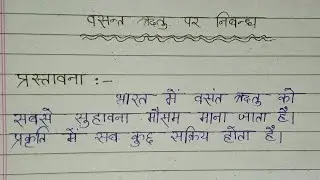 वसन्त ऋतु पर निबन्ध
प्रस्तावना :-
भारत में वसंत ऋतु को
सबसे सुहावना मौसम माना जाता है।
प्रकृति में सब कुछ सक्रिय होता है।